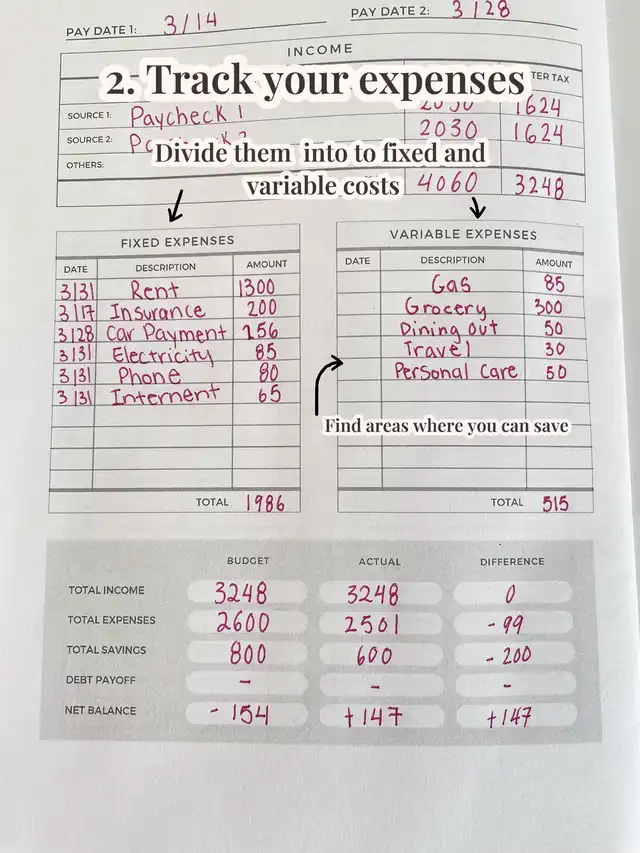 PAY DATE 1: 3/14
PAY DATE 2: 3/28
INCOME
2. Track your expenses
TER TAX
SOURCE 1: Paycheck 1 2030 1624
SOURCE 2: 2030 1624
Divide them into to fixed and
OTHERS:
variable costs
4060 3248
FIXED EXPENSES
DATE DESCRIPTION AMOUNT
3/31 Rent 1300
3/17 Insurance 200
3/28 Car Payment 256
3/31 Electricity 85
3/31 Phone 80
3/31 Internent 65
TOTAL 1986
VARIABLE EXPENSES
DATE DESCRIPTION AMOUNT
Gas 85
Grocery 300
Dining out 50
Travel 30
Personal Care 50
Find areas where you can save
TOTAL 515
BUDGET ACTUAL DIFFERENCE
TOTAL INCOME 3248 3248 0
TOTAL EXPENSES 2600 2501 - 99
TOTAL SAVINGS 800 600 - 200
DEBT PAYOFF - - -
NET BALANCE - 154 +147 +147